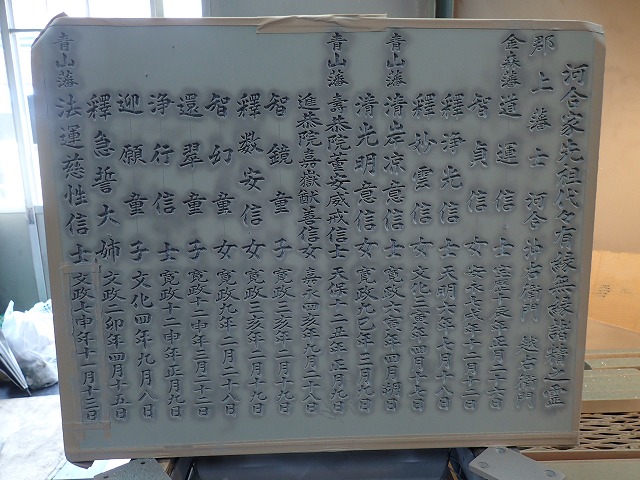 河合家先祖代々有縁無縁諸精之霊
郡上藩士 河合 弥右衛門 越右衛門
金森藩 道運信士 宝暦十辰年正月二十七日
智貞信女 安永七戌年十二月十二日
釋浄光信士 天明六年七月十八日
釋妙雲信女 文化三寅年四月十七日
青山藩 清岸凉意信士 寛政六寅年四月朔日
清光明意信女 寛政九巳年三月九日
青山藩 壽恭院董安威戒信士 天保十二丑年正月九日
進恭院嘉嶽猷善信女 嘉永四亥年九月二十八日
智鏡童子 寛政三亥年二月十九日
釋教安信女 寛政三亥年二月十九日
智幻童女 寛政九年二月二十八日
還翠童子 寛政十二申年三月二十二日
浄行信士 寛政十二申年正月九日
迎願童子 文化四年九月八日
釋急誓大姉 文政二卯年四月十五日
青山藩 法運慈性信士 文政七申年十一月十二日